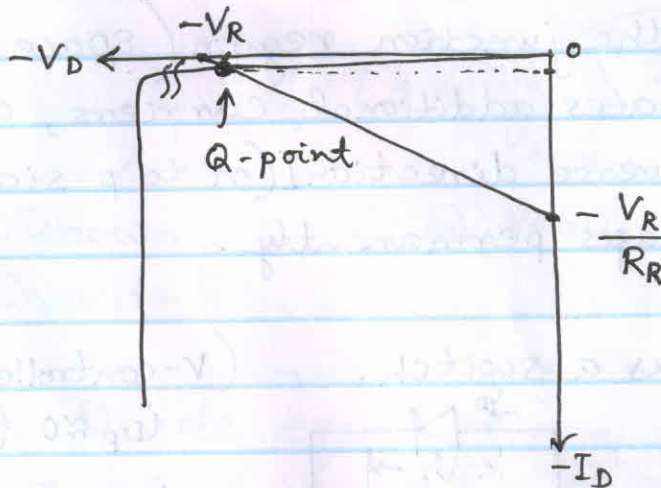 -V_R
-V_D
0
Q-point
- V_R / R_R
-I_D